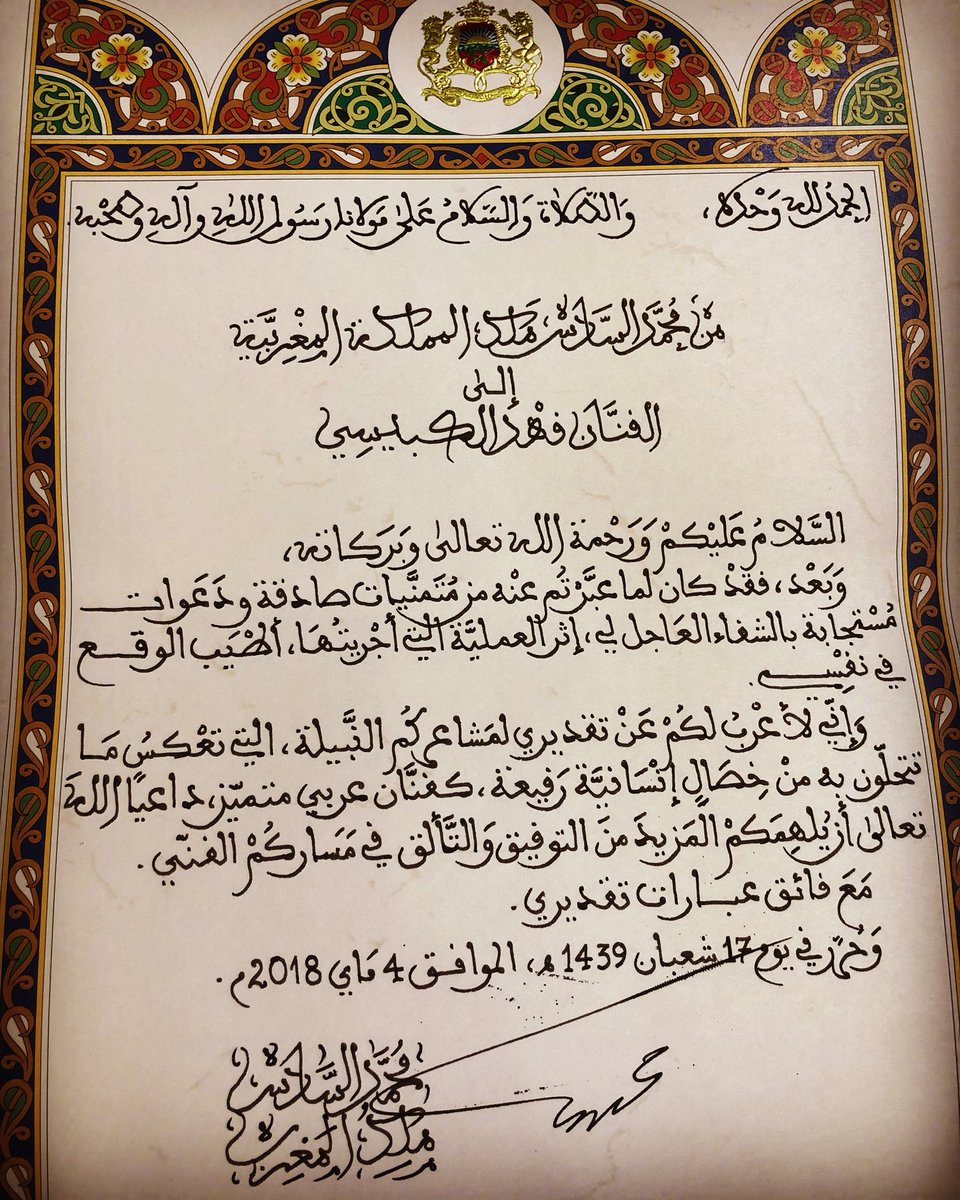 الحمد لله وحده، والصلاة والسلام على مولانا رسول الله وآله وصحبه.
من محمد السادس ملك المملكة المغربية
إلى
الفنان فهد الكبيسي
السَّلامُ عَلَيْكمْ وَرَحْمة الله تعالى وَبَرَكاته،
وَبَعْد، فقدْ كان لما عبَّرْتُم عنْه من مُتَمَنَّيات صادقة ودَعَوات
مُسْتجابة بالشفاء العَاجل لي، إثر العمليَّة التي أجْريتُهَا، أطْيَب الوقع
في نفْسِي.
وَإنّي لأعْربُ لكُمْ عَنْ تقديري لمَشاعركُم النَّبيلة، التي تعْكسُ مَا
تتحلّون به منْ خِصَالٍ إنْسَانيَّة رَفيعة، كفنَّان عربي متميّز، داعيًا اللهَ
تعالى أن يُلهِمَكمْ المَزيدَ منَ التوفيق وَالتَّألق في مَسَاركُمْ الفنّي.
مَعَ فائق عبارات تقديري.
وَحُرّر في يوم 17 شعبان 1439 هـ، الموافق 4 مَاي 2018 م.
محمد السادس
ملك المغرب